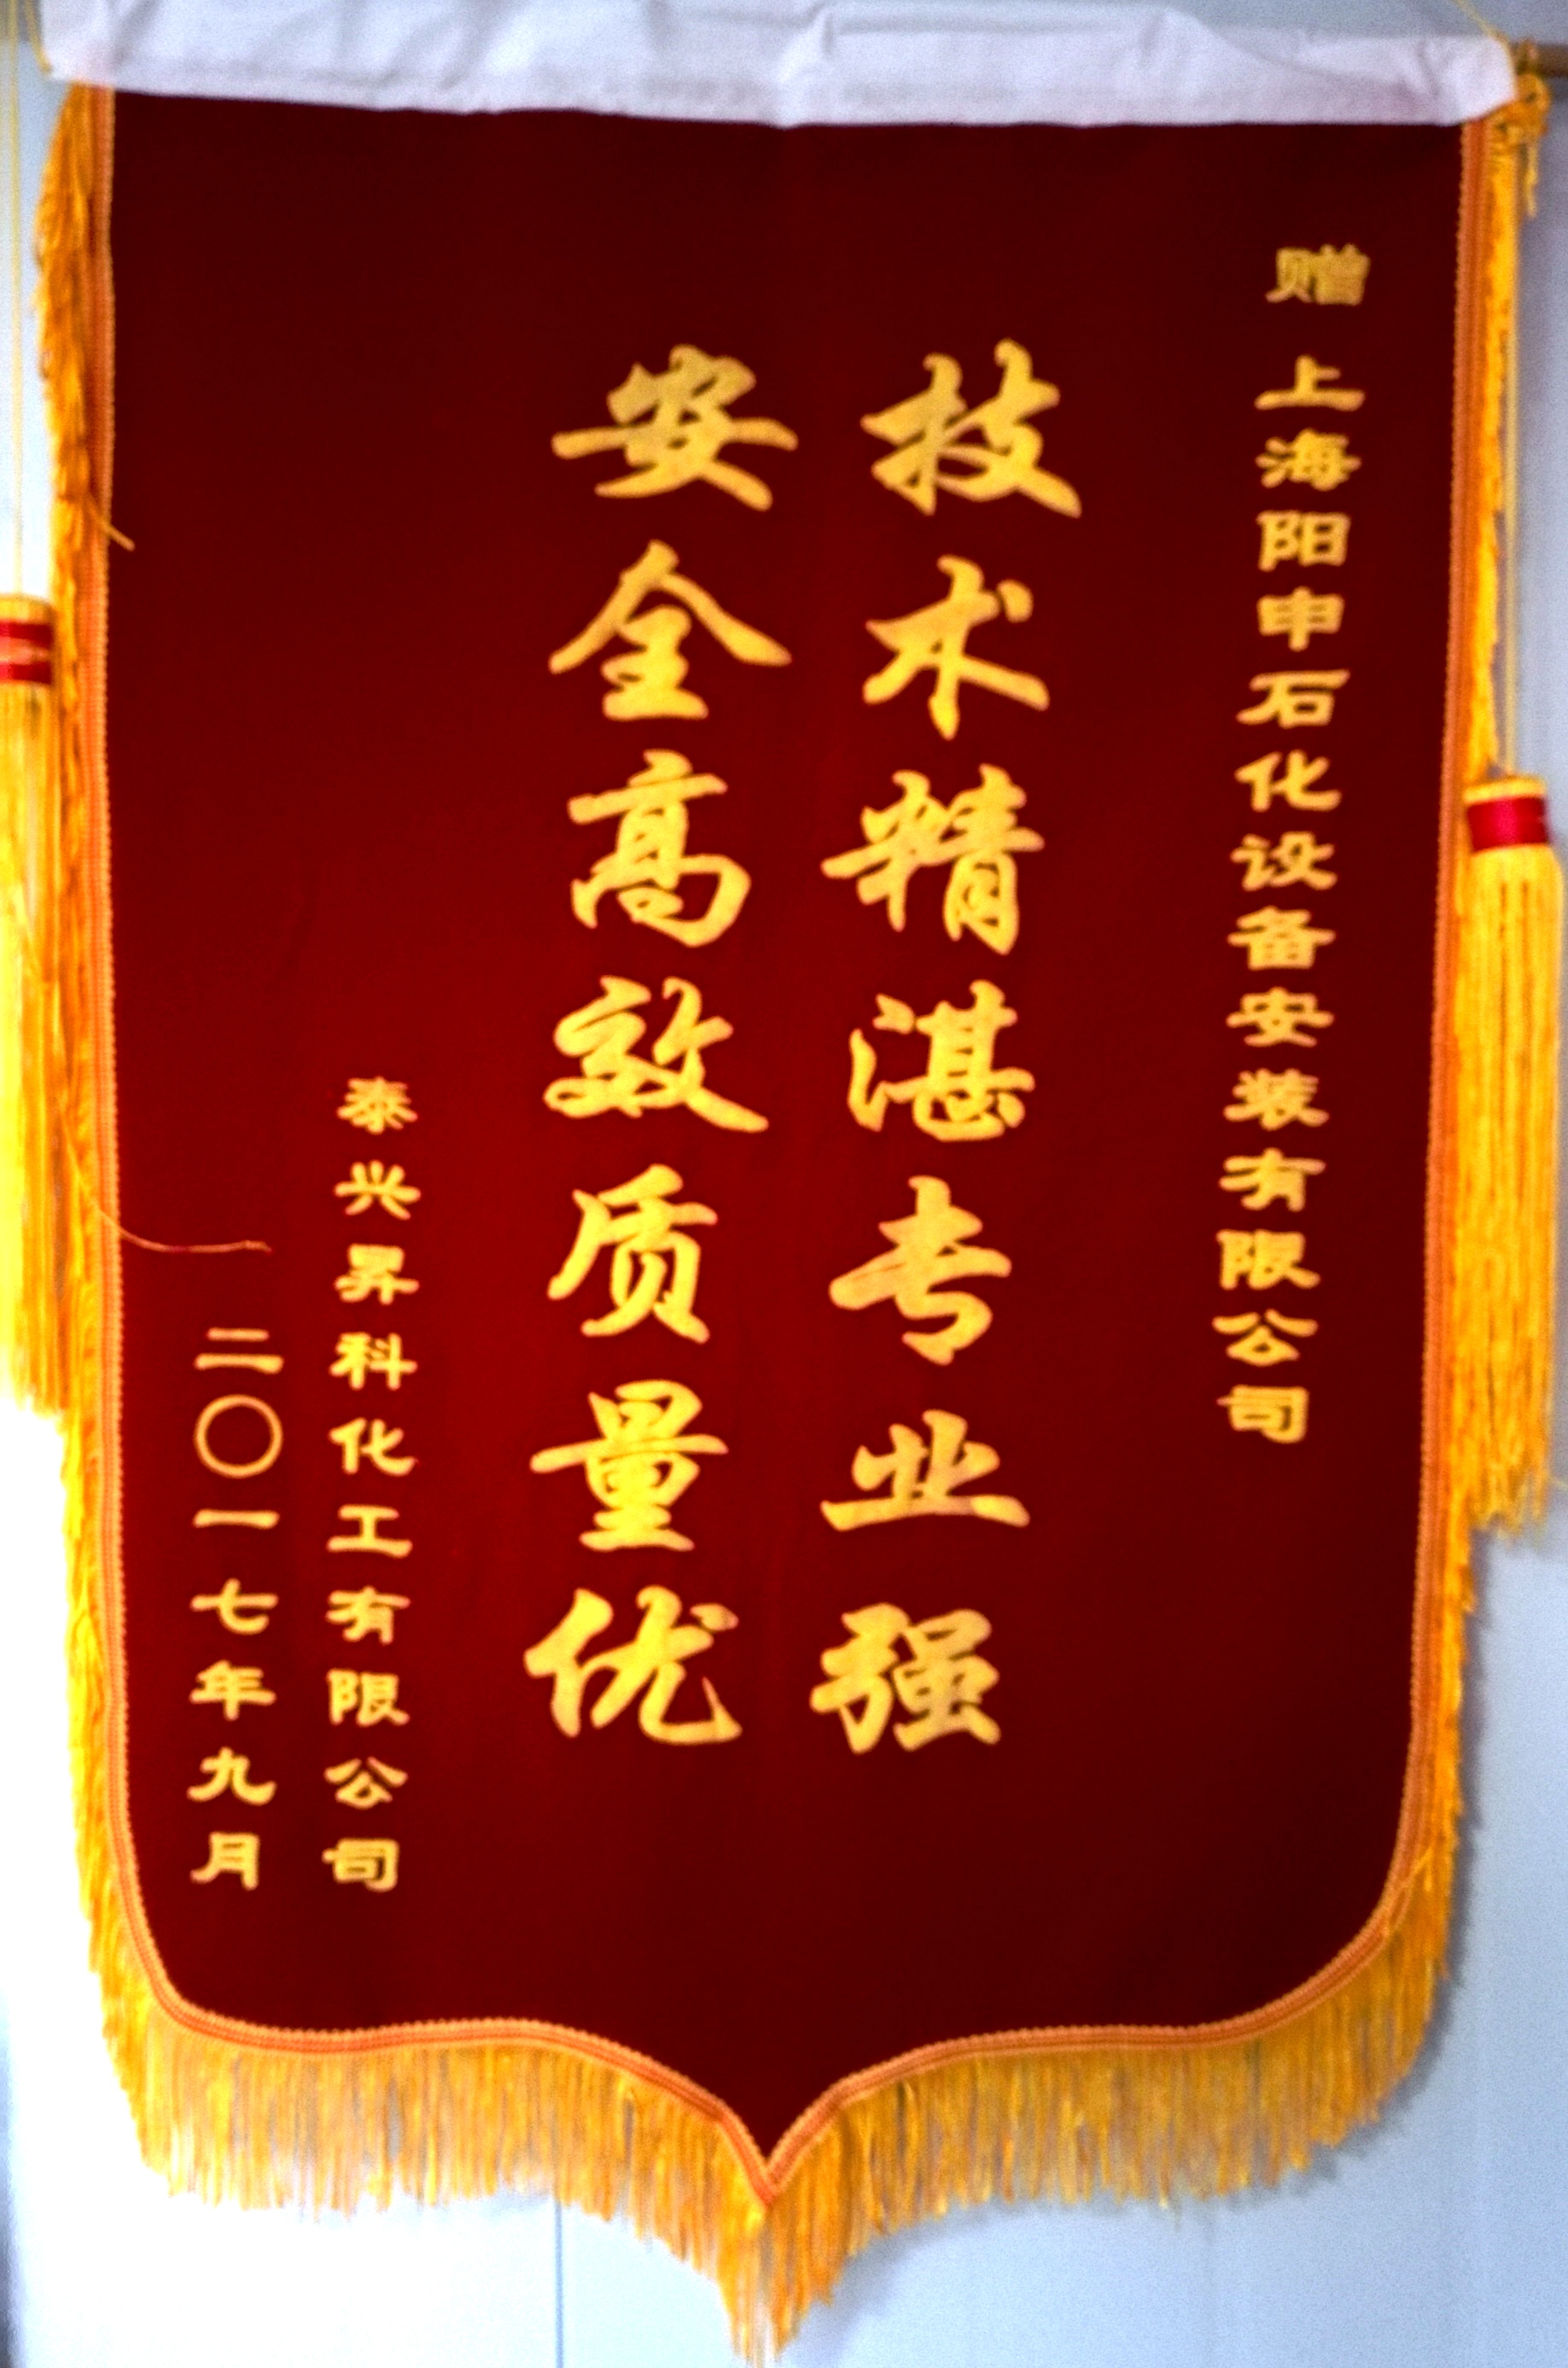 赠 上海阳申石化设备安装有限公司
技术精湛专业强
安全高效质量优
泰兴昇科化工有限公司
二〇一七年九月